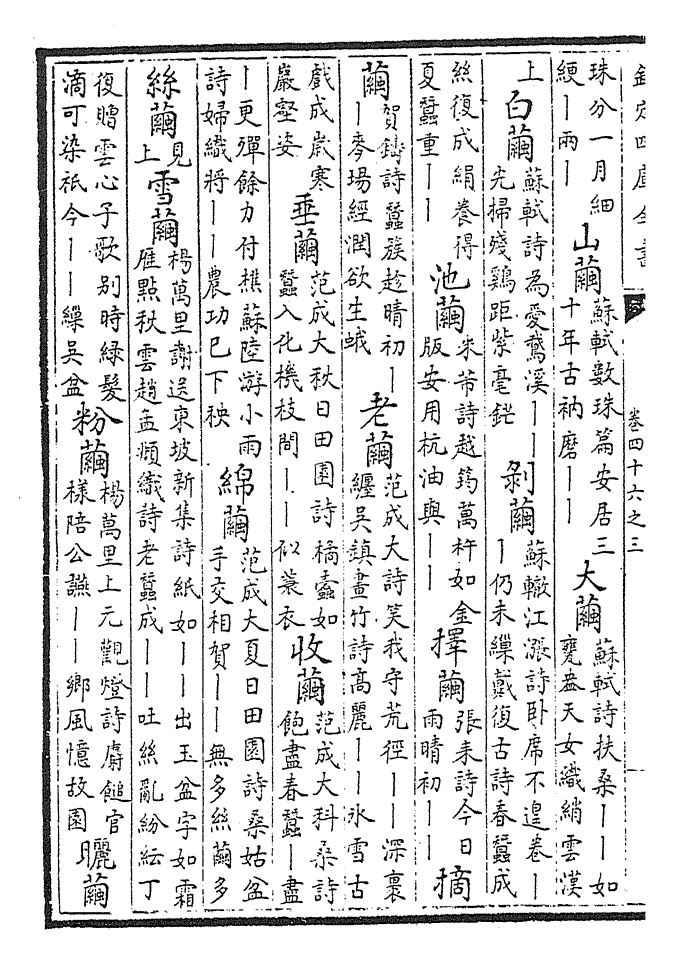 欽定四庫全書
卷四十六之三
珠分一月細
綆丨兩丨
山繭
蘇軾數珠篇安居三
十年古衲磨丨丨
大繭
蘇軾詩扶桑丨丨如
甕盎天女織綃雲漢
上
白繭
蘇軾詩為愛鵞溪丨丨
光掃殘鷄距紫毫鋩
剝繭
蘇轍江漲詩卧席不遑卷丨
丨仍未繅戴復古詩春蠶成
絲復成絹養得
夏蠶重丨丨
池繭
米芾詩越筠萬杵如金
版安用杭油與丨丨
擇繭
張耒詩今日
雨晴初丨丨
摘
繭
賀鑄詩蠶簇趁晴初丨
丨麥場經潤欲生蛾
老繭
范成大詩笑我守荒徑丨丨深裹
纏吳鎮畫竹詩高麗丨丨氷雪古
戲成嵗寒
巖壑姿
垂繭
范成大秋日田園詩橘蠧如
蠶入化機枝間丨丨似蓑衣
收繭
范成大科桑詩
飽盡春蠶丨盡
丨更彈餘力付樵蘇陸游小雨
詩婦織將丨丨農功已下秧
綿繭
范成大夏日田園詩桑姑盆
手交相賀丨丨無多絲繭多
絲繭
見
上
雪繭
楊萬里謝送東坡新集詩紙如丨丨出玉盆字如霜
雁點秋雲趙孟頫織詩老蠶成丨丨吐絲亂紛紜丁
復贈雲心子歌别時緑髪
滴可染祇今丨丨繰吳盆
粉繭
楊萬里上元觀燈詩麝䭔官
様陪公讌丨丨鄉風憶故園
曬繭